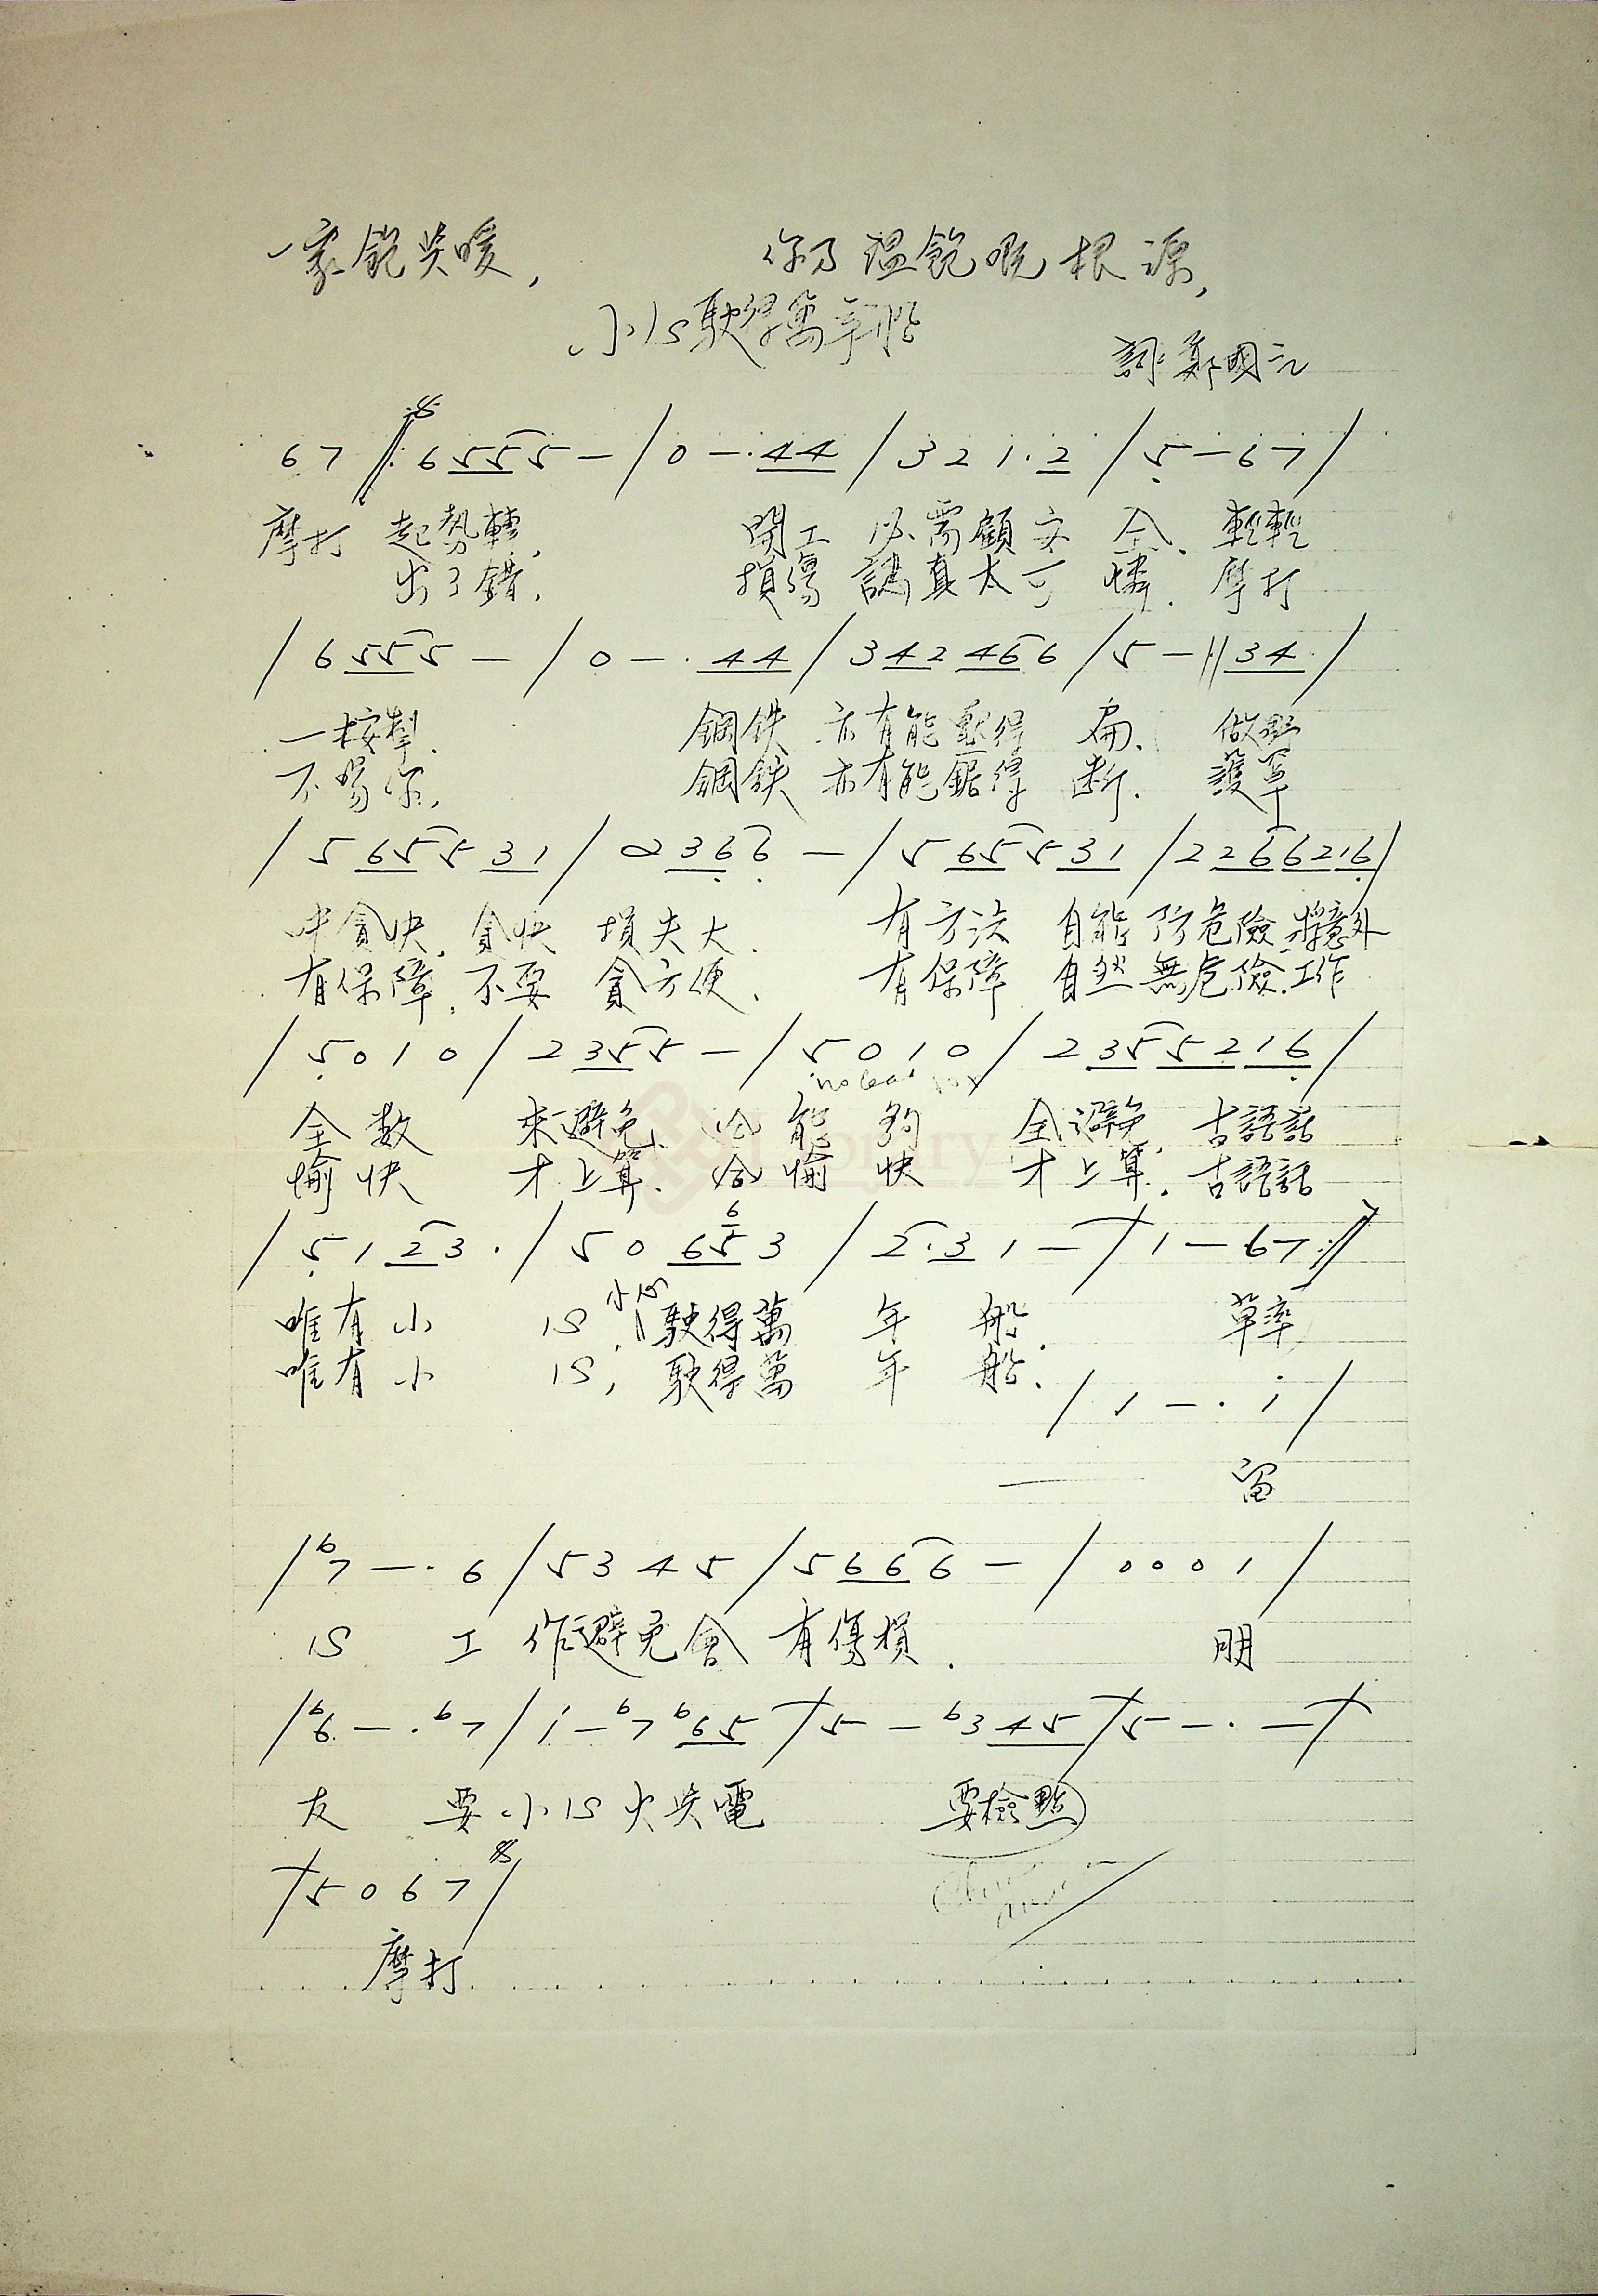 一家飽與暖， 你乃温飽嘅根源，
小IS駛得萬年船
詞：鄭國江
67 ‖: 6555 — / 0 — · 44 / 321·2 / 5 — 67 /
摩打 起勢轉， 開工 必需顧安全、輕輕
出了錯， 損傷 認真太可憐．摩打
/ 6555 — / 0 — · 44 / 342466 / 5 — ‖ 34 /
一按掣． 鋼铁 亦有能壓得扁、 做野
不易你， 鋼鉄 亦有能鋸得断． 護罩
/ 5655 31 / 02366 — / 5655 31 / 226 6216 /
咪貪快，貪快 損失大． 有方法 自能防危險．將意外
有保障，不要 貪方便、 有保障 自然無危險．工作
/ 5010 / 2355 — / 5010 / 2355216 /
全数 來避免、 能夠 全避免， 古語話
愉快 才上算、 愉快 才上算． 古語話
/ 5123 · / 50 653 / 2·31 — / 1 — 67 :‖
唯有小 IS， 小IS 駛得萬 年 船． 草率
唯有小 IS， 駛得萬 年 船．
/ 1 — · i /
— 留
/ b7 — · 6 / 5345 / 5666 — / 0001 /
IS 工 作避免會 有傷損． 朋
/ b6 — · b7 / i — b7 b65 / 5 — b345 / 5 — · — /
友 要小IS火與電 要檢點
/ 5067 /
摩打